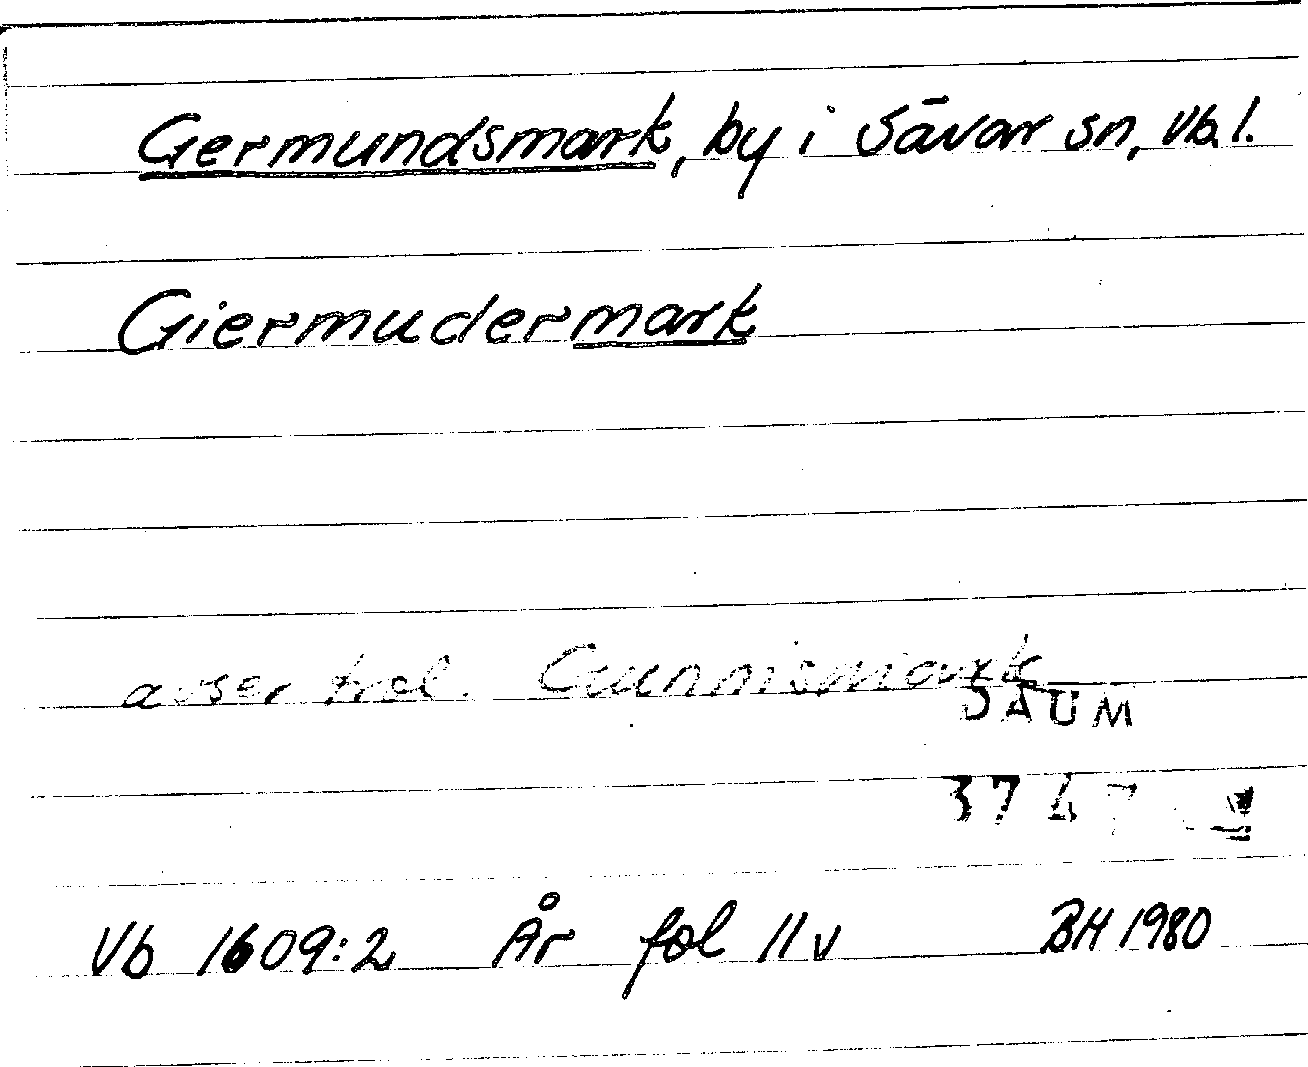 Germundsmark, by i Sävar sn, Vb. l.
Giermudermark
avser trol. Gunnismark
DAUM
Vb 1609:2 År fol 11v BH 1980